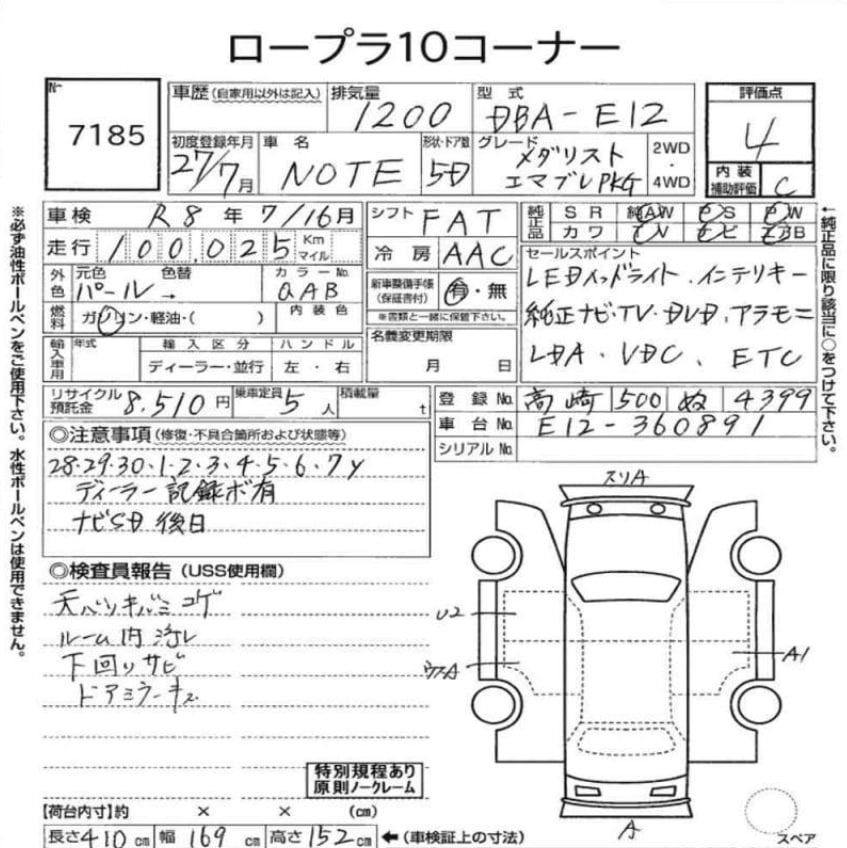 ロープラ10コーナー
No
7185
車歴 (自家用以外は記入)
排気量 1200
型式 DBA-E12
評価点 4
初度登録年月 27/7月
車名 NOTE
形状・ドア数 5D
グレード メダリスト
エマブレPKG
2WD・4WD
内装補助評価 C
車検 R8年7/16月
シフト FAT
純正品 SR 純AW PS PW
カワ TV ナビ エアB
走行 100,025 Km マイル
冷房 AAC
セールスポイント
LEDヘッドライト．インテリキー
純正ナビ・TV・DVD．アラモニ
LDA．VDC．ETC
外色 元色 パール 色替 →
カラーNo. QAB
新車整備手帳(保証書付) 有・無
※書類と一緒に保管下さい。
燃料 ガソリン・軽油・( )
内装色
名義変更期限
月 日
輸入車用 年式 輸入区分 ハンドル
ディーラー・並行 左・右
リサイクル預託金 8.510円
乗車定員 5人
積載量 t
登録No. 高崎 500 ぬ 4399
車台No. E12-360891
シリアルNo.
◎注意事項 (修復・不具合箇所および状態等)
28・29・30・1・2・3・4・5・6・7y
ディーラー記録ボ有
ナビSD後日
◎検査員報告 (USS使用欄)
天バリキバミコゲ
ルーム内汚レ
下回りサビ
ドアミラーキズ
特別規程あり
原則ノークレーム
スリA
U2
A1
A
スペア
【荷台内寸】約 × × (cm)
長さ410cm 幅169cm 高さ152cm ←(車検証上の寸法)
※必ず油性ボールペンをご使用下さい。水性ボールペンは使用できません。
←純正品に限り該当に○をつけて下さい。